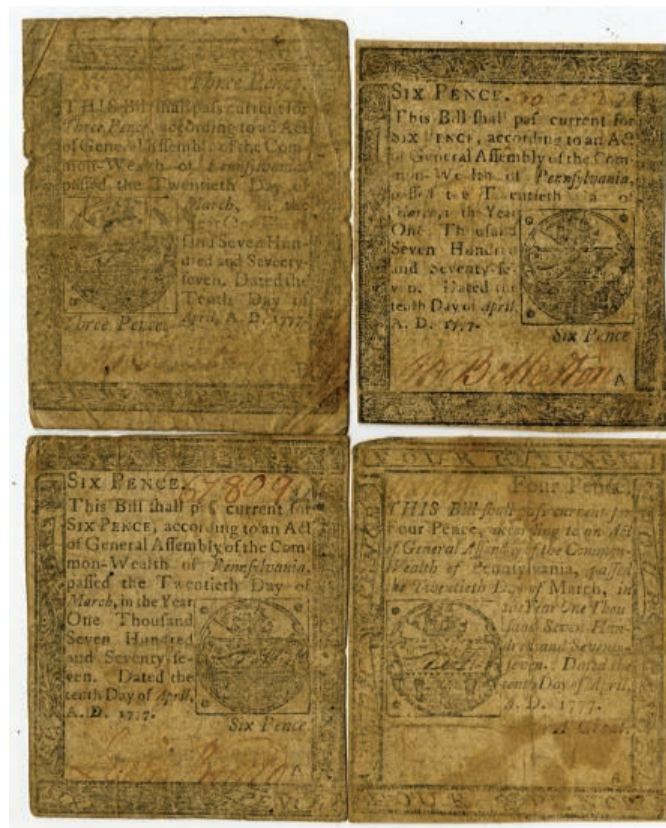 Three Pence.
THIS Bill ſhall paſs current for
Three Pence, according to an Act
of General Aſſembly of the Com-
mon-Wealth of Pennſylvania,
paſſed the Twentieth Day of
March, the
ſand Seven Hun-
dred and Seventy-
ſeven. Dated the
Tenth Day of
April, A. D. 1777.
Three Pence.
SIX PENCE.
This Bill ſhall paſ current for
SIX PENCE, according to an Act
of General Aſſembly of the Com-
mon-Wealth of Pennſylvania,
paſſed the Twentieth of
March, in the Year
One Thouſand
Seven Hundred
and Seventy-ſe-
ven. Dated the
tenth Day of April,
A. D. 1777.
Six Pence
A
SIX PENCE. 57809
This Bill ſhall current for
SIX PENCE, according to an Act
of General Aſſembly of the Com-
mon-Wealth of Pennſylvania,
paſſed the Twentieth Day of
March, in the Year
One Thouſand
Seven Hundred
and Seventy-ſe-
ven. Dated the
tenth Day of April,
A. D. 1777.
Six Pence
A
Four Pence.
THIS Bill ſhall paſs current for
Four Pence, according to an Act
of General Aſſembly of the Common-
Wealth of Pennſylvania, paſſed
the Twentieth Day of March, in
the Year One Thou
ſand Seven Hun-
dred and Seventy-
ſeven. Dated the
tenth Day of April,
A. D. 1777.
A Groat.
A